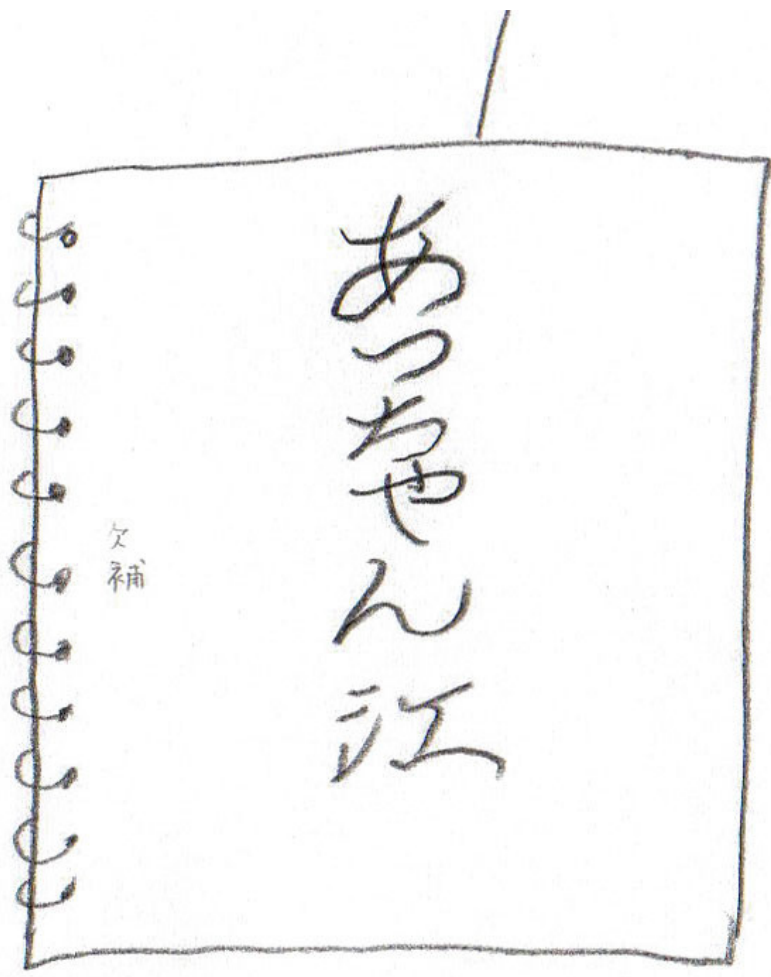 あっちゃん江
欠補